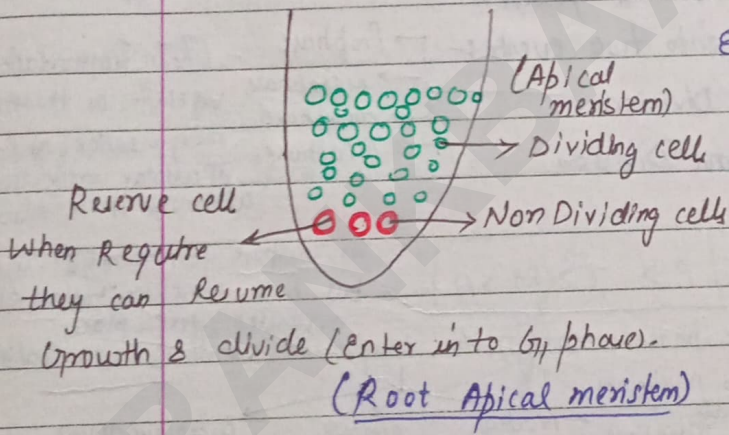 (Apical
meristem)
Dividing cell
Reserve cell
Non Dividing cells
When Require
they can Resume
Growth & divide (Enter in to G1 phase).
(Root Apical meristem)